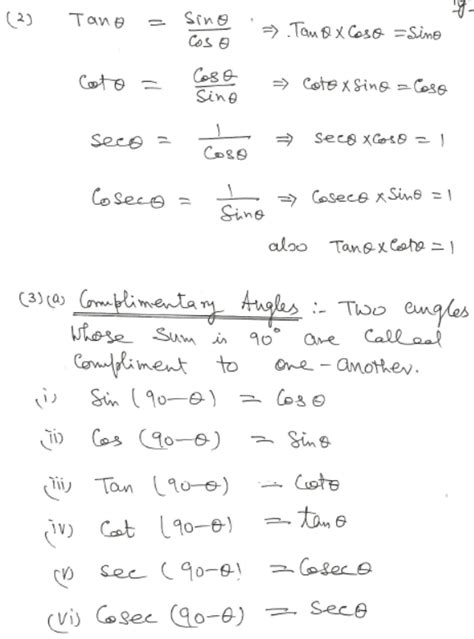 (2) Tanθ = Sinθ/Cosθ ⇒ Tanθ×Cosθ = Sinθ
Cotθ = Cosθ/Sinθ ⇒ Cotθ×Sinθ = Cosθ
Secθ = 1/Cosθ ⇒ Secθ×Cosθ = 1
Cosecθ = 1/Sinθ ⇒ Cosecθ×Sinθ = 1
also Tanθ×Cotθ = 1
(3)(a) Complimentary Angles :- Two angles
whose Sum is 90° are Called
Compliment to one-another.
(i) Sin (90-θ) = Cosθ
(ii) Cos (90-θ) = Sinθ
(iii) Tan (90-θ) = Cotθ
(iv) Cot (90-θ) = tanθ
(v) Sec (90-θ) = Cosecθ
(vi) Cosec (90-θ) = Secθ